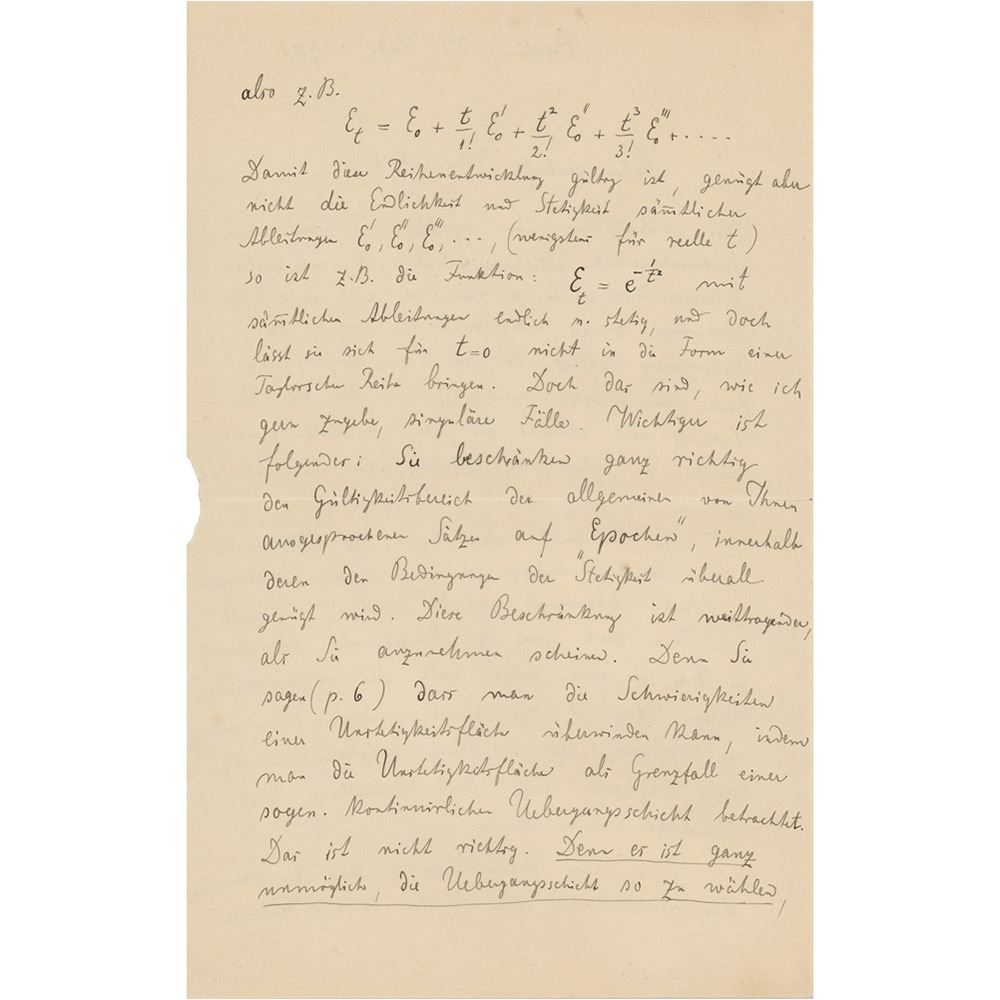 also z. B.
ℰ_t = ℰ_0 + t/1! ℰ_0' + t²/2! ℰ_0'' + t³/3! ℰ_0''' + ....
Damit diese Reihenentwicklung gültig ist, genügt aber
nicht die Endlichkeit und Stetigkeit säm̄tlicher
Ableitungen ℰ_0', ℰ_0'', ℰ_0''', ..., (wenigstens für reelle t)
so ist z.B. die Funktion: ℰ_t = e^{-1/t²} mit
säm̄tlichen Ableitungen endlich u. stetig, und doch
lässt sie sich für t=0 nicht in die Form einer
Taylorschen Reihe bringen. Doch das sind, wie ich
gern zugebe, singuläre Fälle. Wichtiger ist
folgendes: Sie beschränken ganz richtig
den Gültigkeitsbereich der allgemeinen von Ihnen
ausgesprochenen Sätze auf "Epochen", innerhalb
deren den Bedingungen der Stetigkeit überall
genügt wird. Diese Beschränkung ist weittragender,
als Sie anzunehmen scheinen. Denn Sie
sagen (p. 6) dass man die Schwierigkeiten
einer Unstetigkeitsfläche überwinden kann, indem
man die Unstetigkeitsfläche als Grenzfall einer
sogen. kontinuirlichen Uebergangsschicht betrachtet.
Das ist nicht richtig. Denn es ist ganz
unmöglich, die Uebergangsschicht so zu wählen,